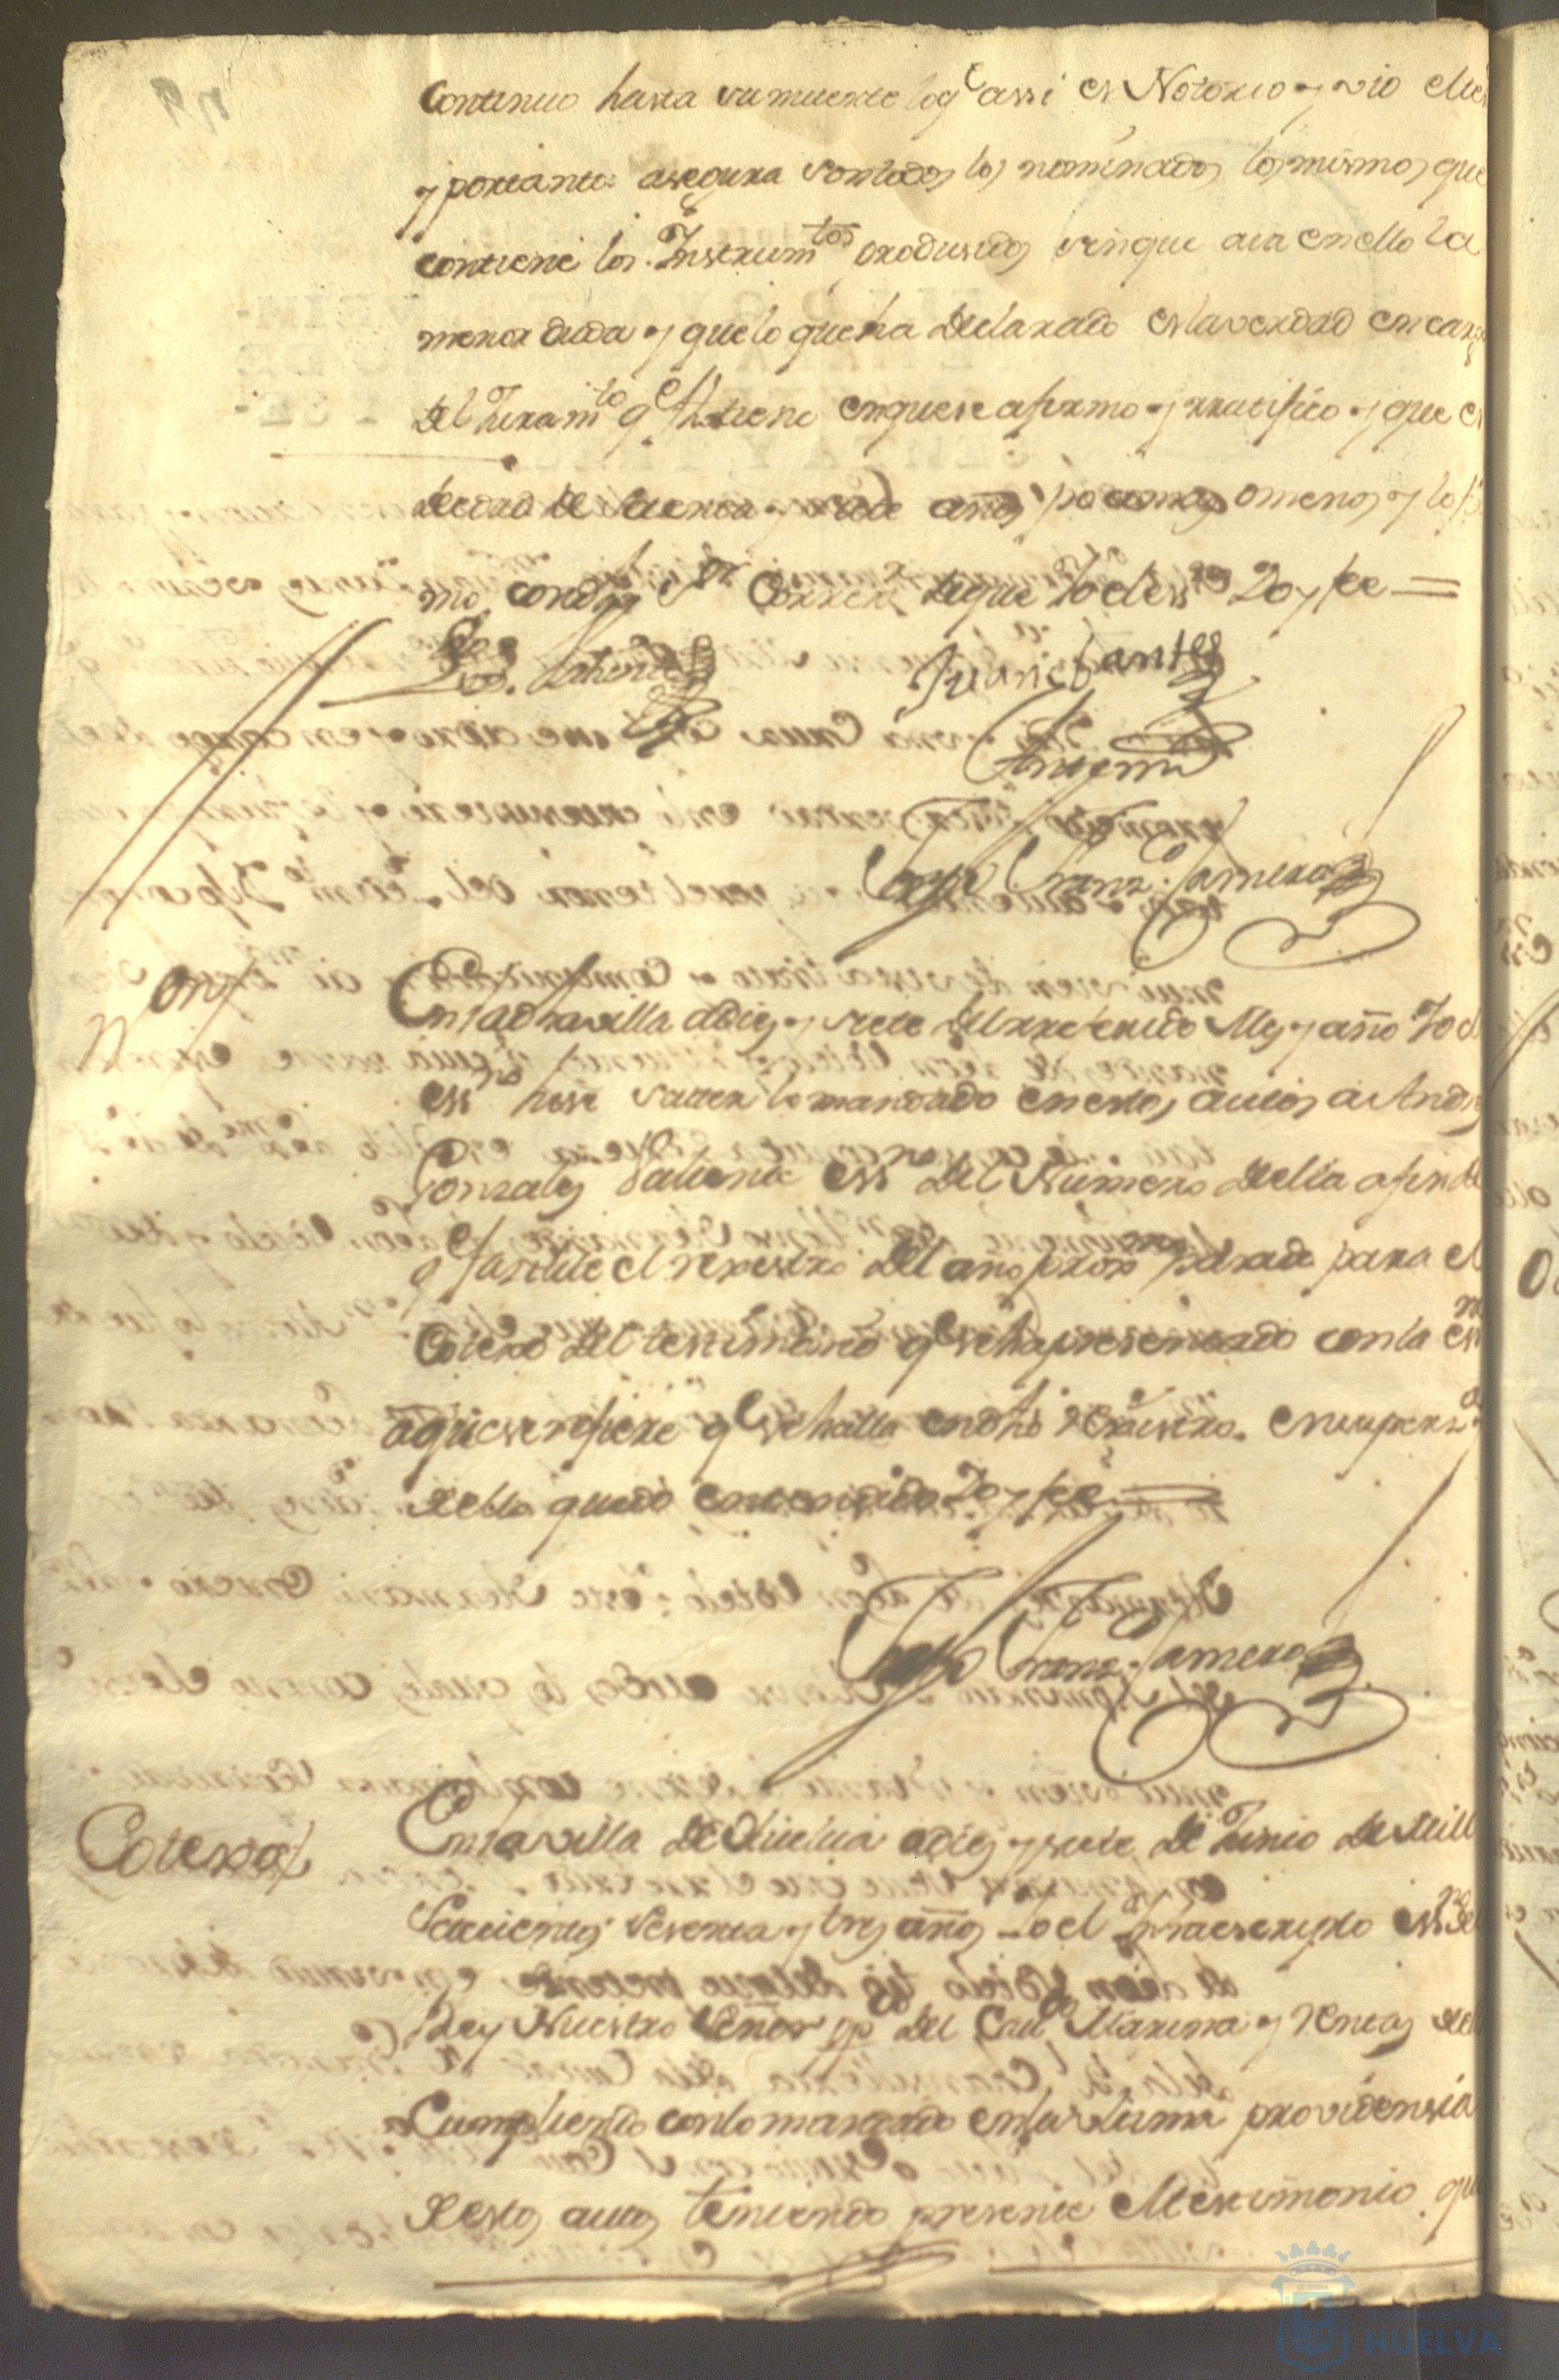 Continuo hasta su muerte loq.e assi es Notorio y vio el tes
y portanto asegura son todos los nominados los mismos que
contiene los Instrum.tos produsidos sinque aia en ello la
menor duda y que lo que ha declarado es la verdad en cargo
del Juram.to q.e fho tiene en que se afirmo y rratifico y que es
de edad de setenta y siete años poco mas o menos y lo fir
mo con dho S.or Correx.or de que Yo el ess.no Doy fee =
Juan Santos
Ante mi
Joseph Franz. Zamero
Ot.n
En la dha villa a dies y siete del rreferido Mes y año Yo el
ess.no hise saver lo mandado en estos autos a Andres
Gonzales Valiente ess.no del Numero de ella a fin de
q.e fasilite el rexistro del año pasado para el
Cotexo del testimonio q.e se ha presentado con la ess.ra
aquise rrefiere q.e se halla en dho rexistro. en su perz.a
de ello quedo entendido Doy fee =
Joseph Franz. Zamero
Cotexo
En la villa de Huelva a dies y siete de Junio de Mill
Setecientos sesenta y tres años Yo el Infraescripto ess.no del
Rey Nuestro Señor pp.co del Cau.do Marina y rentas de ella
Cumpliendo con lo mandado en la ultima providensia
de estos autos teniendo presente el testimonio que
HUELVA